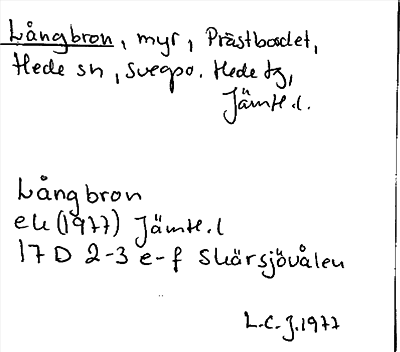 Långbron, myr, Prästbordet,
Hede sn, Svegpo. Hede tg,
Jämtl.l.
Långbron
ek (1977) Jämtl.l
17 D 2-3 e-f Skärsjövålen
L.C.J.1977